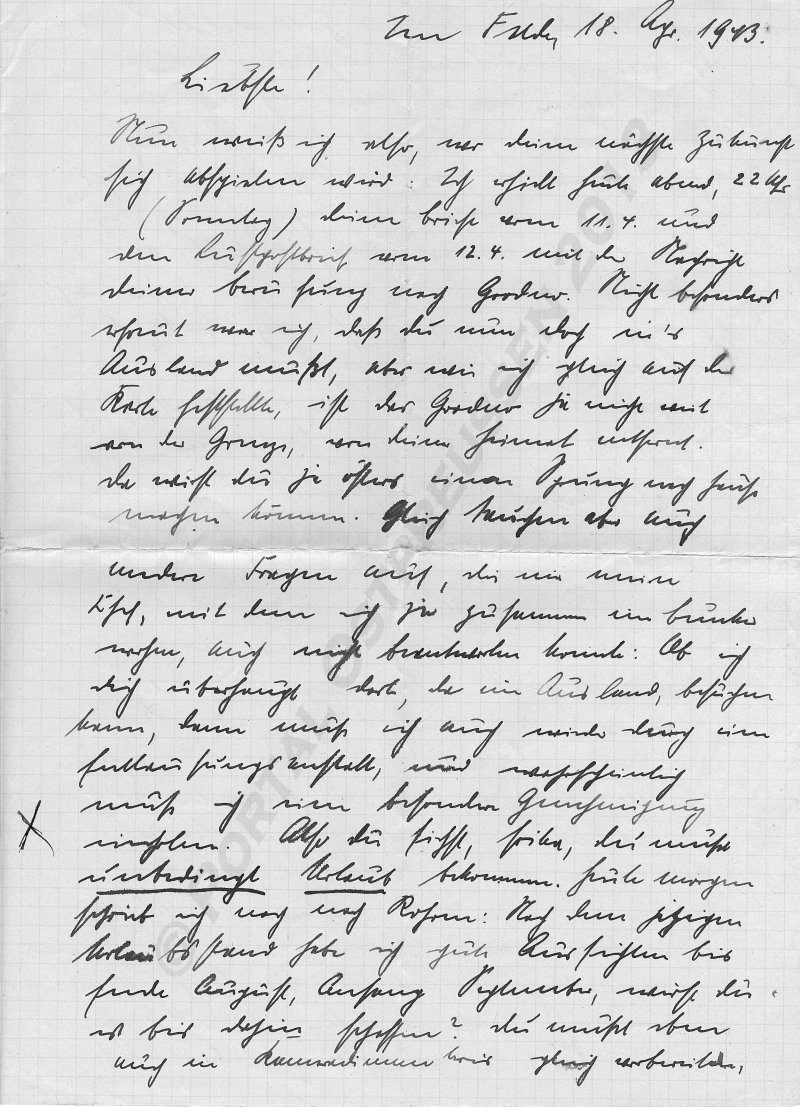 Im Felde, 18. Apr. 1943.
Liebste!
Nun weiß ich also, wo deine nächste Zukunft
sich abspielen wird: Ich erhielt heute abend, 22 Uhr
(Sonntag) deinen Brief vom 11.4. und
den Luftpostbrief vom 12.4. mit der Nachricht
deiner Berufung nach Grodno. Nicht besonders
erfreut war ich, daß du nun doch in's
Ausland mußt, aber wie ich gleich auf der
Karte feststellte, ist das Grodno ja nicht weit
von der Grenze, von deiner Heimat entfernt.
Da wirst du ja öfters einen Sprung nach Hause
machen können. Gleich tauchen aber auch
andere Fragen auf, die mir mein
Chef, mit dem ich ja zusammen im Bunker
wohne, auch nicht beantworten konnte: Ob ich
dich überhaupt dort, da im Ausland, besuchen
kann, denn muß ich auch wieder durch eine
Entlausungsanstalt, und wahrscheinlich
muß ich eine besondere Genehmigung
einholen. Also du siehst, Erika, du mußt
unbedingt Urlaub bekommen. Heute morgen
schrieb ich noch nach Rohren: Nach dem jetzigen
Urlaubsstand habe ich gute Aussichten bis
Ende August, Anfang September, wirst du
es bis dahin schaffen? Du mußt eben
auch im Kameradinnenkreis gleich vorbereiten,
© PORTAL OSTPREUSSEN 2012